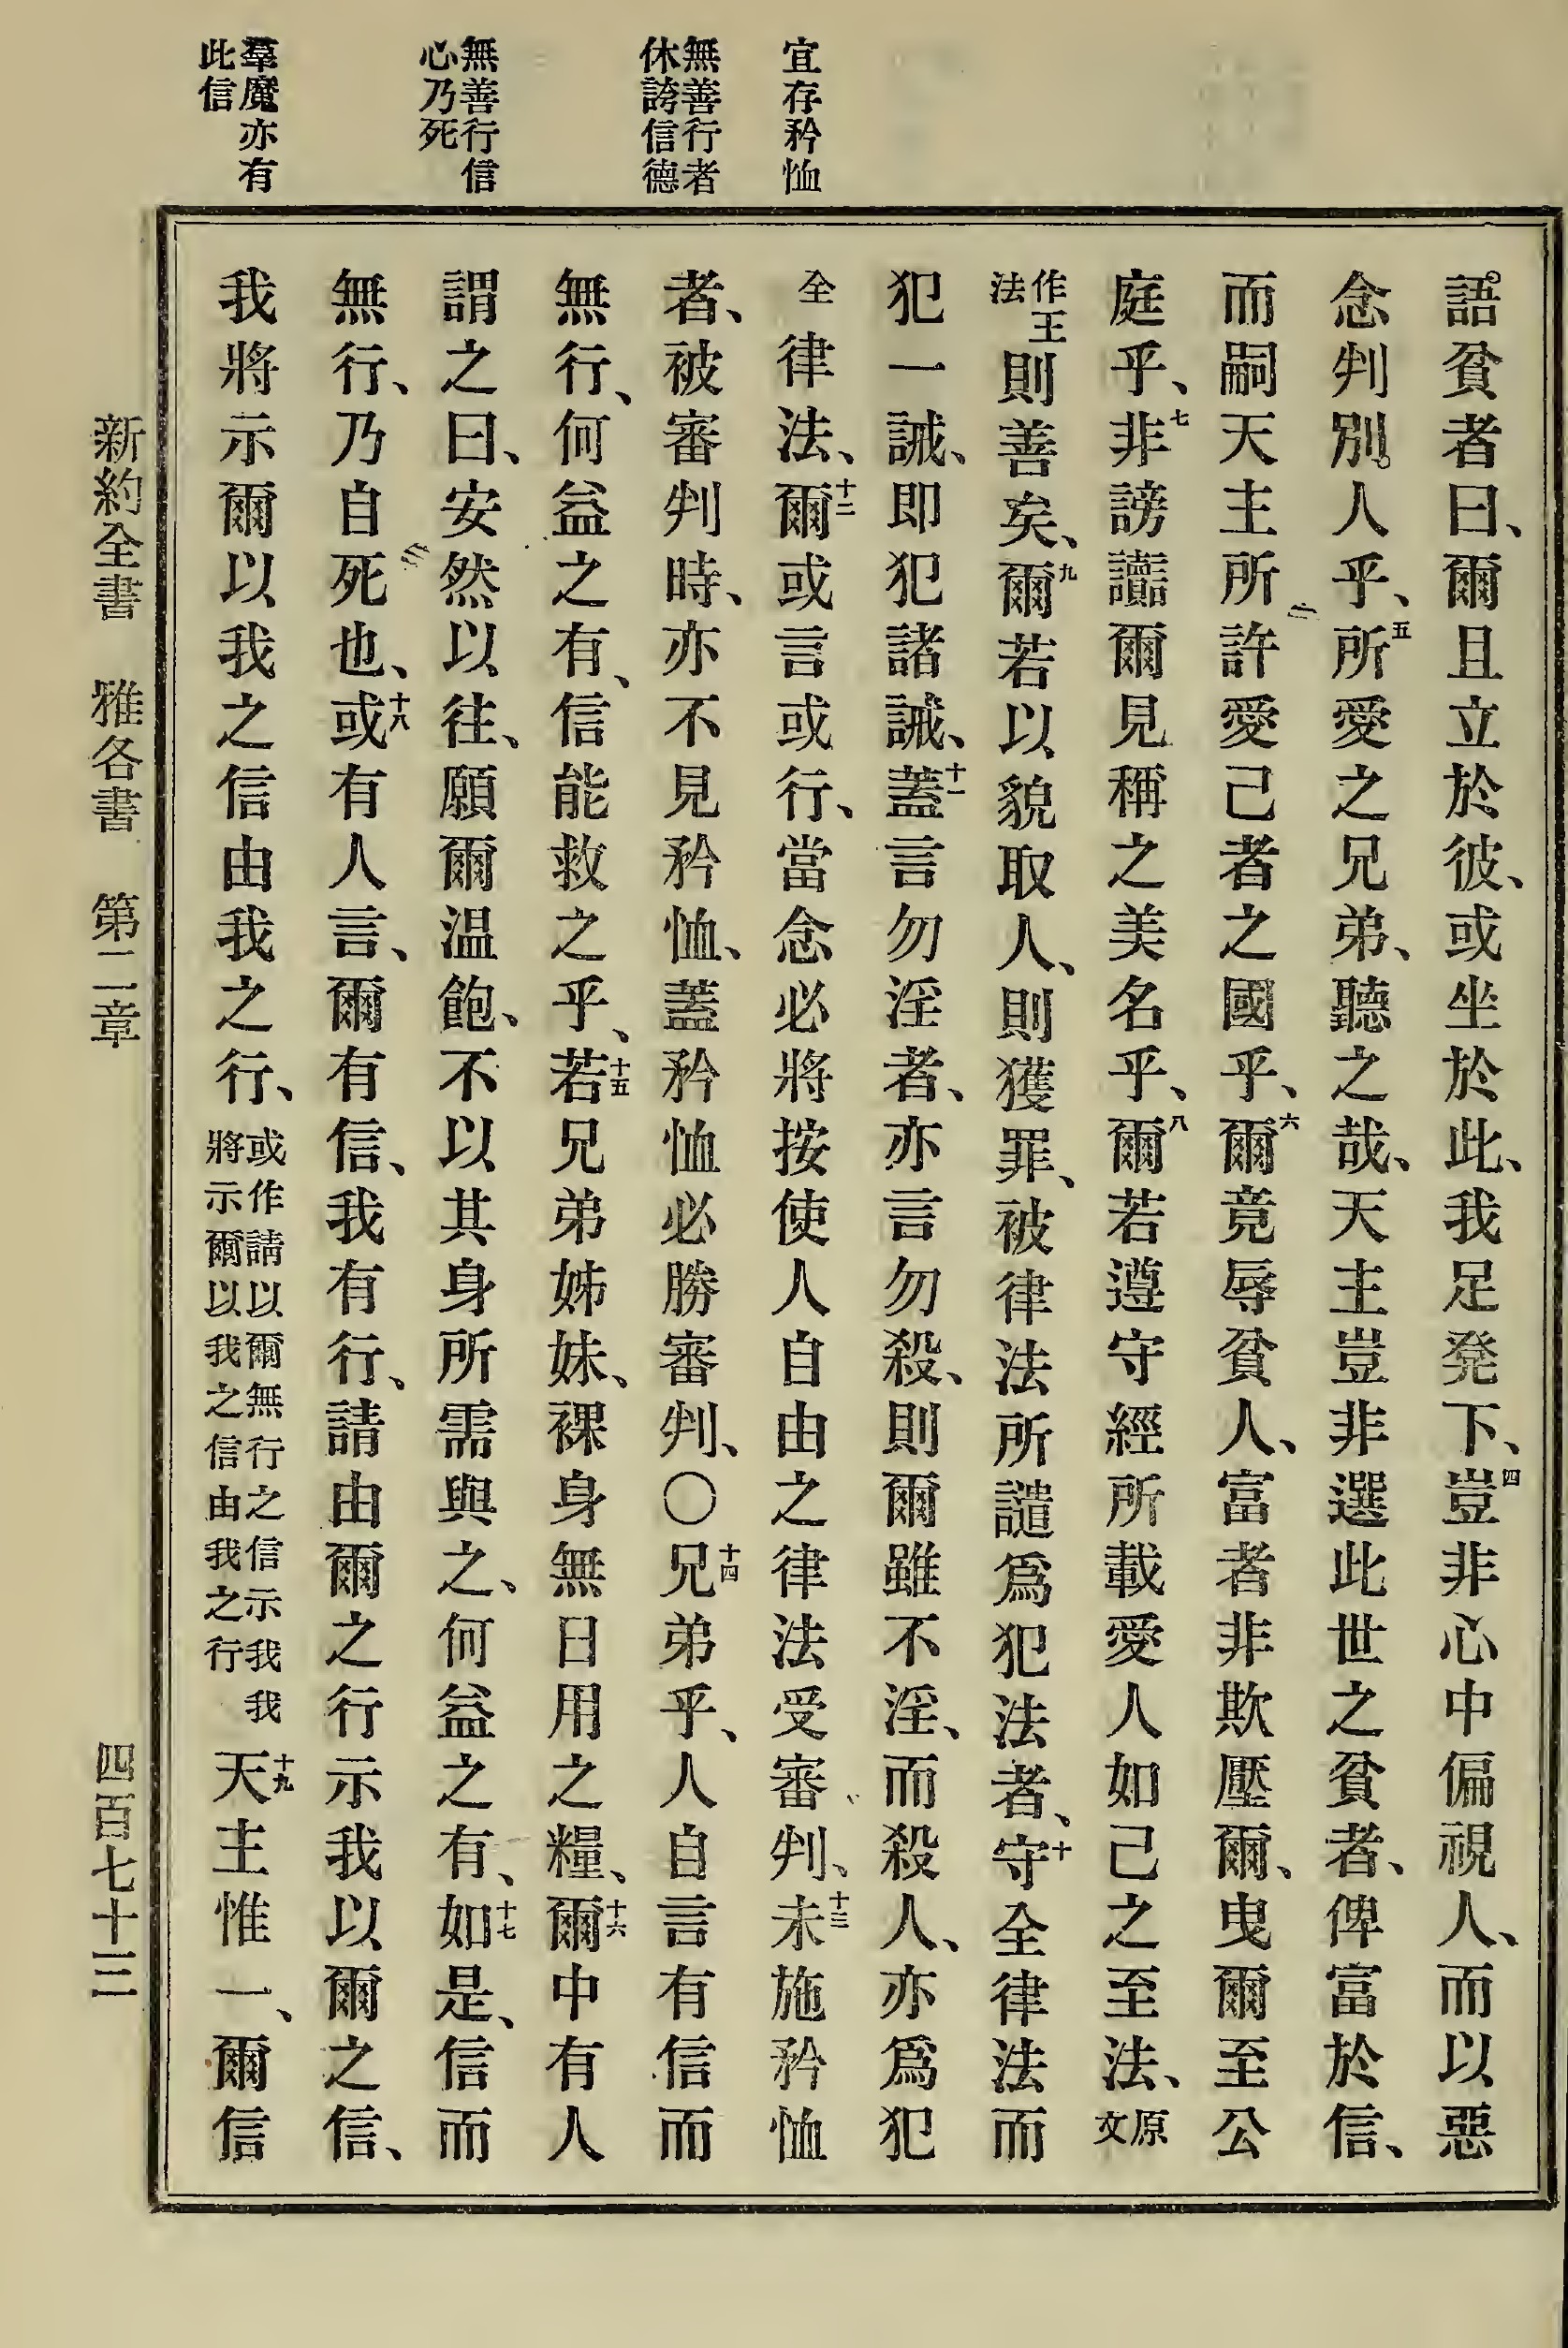 宜存矜恤
無善行者
休誇信德
無善行信
心乃死
羣魔亦有
此信
語貧者曰、爾且立於彼、或坐於此、我足凳下、四豈非心中偏視人、而以惡
念判別人乎、五所愛之兄弟、聽之哉、天主豈非選此世之貧者、俾富於信、
而嗣天主所許愛己者之國乎、六爾竟辱貧人、富者非欺壓爾、曳爾至公
庭乎、七非謗讟爾見稱之美名乎、八爾若遵守經所載愛人如己之至法、原文
作王法則善矣、九爾若以貌取人、則獲罪、被律法所譴爲犯法者、十守全律法而
犯一誡、即犯諸誡、十一蓋言勿淫者、亦言勿殺、則爾雖不淫、而殺人、亦爲犯
全律法、十二爾或言或行、當念必將按使人自由之律法受審判、十三未施矜恤
者、被審判時、亦不見矜恤、蓋矜恤必勝審判、〇十四兄弟乎、人自言有信而
無行、何益之有、信能救之乎、十五若兄弟姊妹、裸身無日用之糧、十六爾中有人
謂之曰、安然以往、願爾温飽、不以其身所需與之、何益之有、十七如是、信而
無行、乃自死也、十八或有人言、爾有信、我有行、請由爾之行示我以爾之信、
我將示爾以我之信由我之行、或作請以爾無行之信示我我將示爾以我之信由我之行十九天主惟一、爾信
新約全書 雅各書 第二章 四百七十三